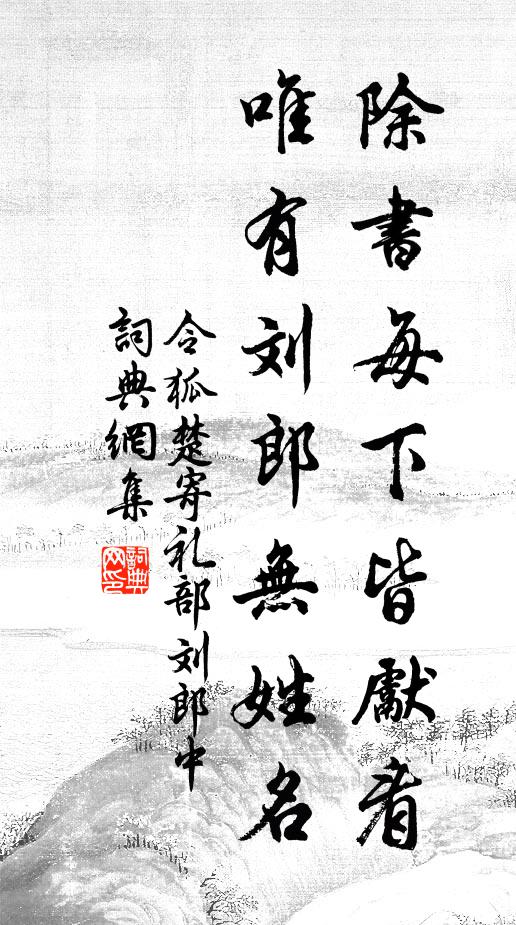 除書每下皆獻看
唯有刘郎無姓名
令狐楚寄礼部刘郎中
詞典網集
詞典网印